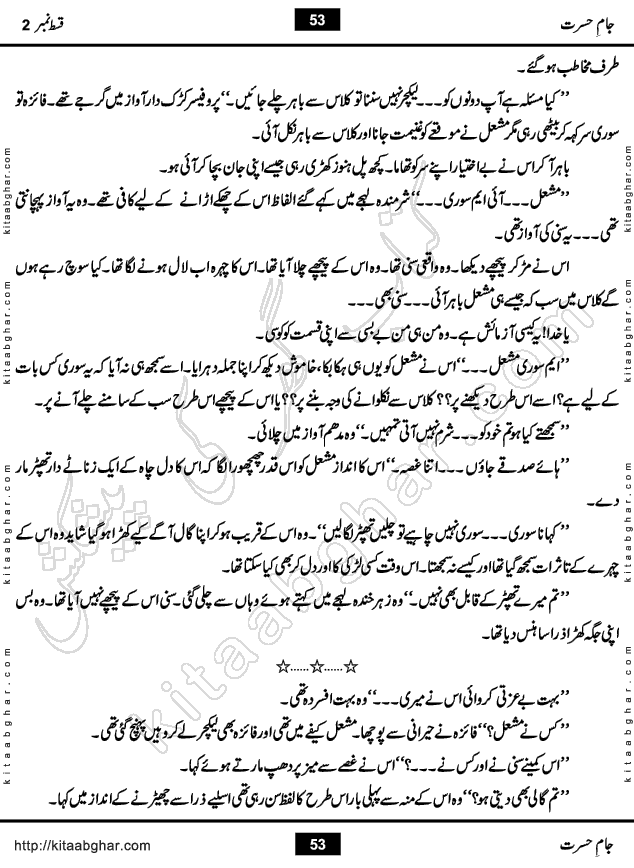 جامِ حسرت
53
قسط نمبر 2
طرف مخاطب ہو گئے۔
’’کیا مسئلہ ہے آپ دونوں کو۔۔۔ لیکچر نہیں سننا تو کلاس سے باہر چلے جائیں۔‘‘ پروفیسر کڑک دار آواز میں گرجے تھے۔ فائزہ تو
سوری سر کہہ کر بیٹھی رہی مگر مشعل نے موقعے کو غنیمت جانا اور کلاس سے باہر نکل آئی۔
باہر آ کر اس نے بے اختیار اپنے سر کو تھاما۔ کچھ پل ہنوز کھڑی رہی جیسے اپنی جان بچا کر آئی ہو۔
’’مشعل۔۔۔ آئی ایم سوری۔۔۔‘‘ شرمندہ لہجے میں کہے گئے الفاظ اس کے چھکے اڑانے کے لیے کافی تھے۔ وہ یہ آواز پہچانتی
تھی۔۔۔ یہ سنی کی آواز تھی۔
اس نے مڑ کر پیچھے دیکھا۔ وہ واقعی سنی تھا۔ وہ اس کے پیچھے چلا آیا تھا۔ اس کا چہرہ اب لال ہونے لگا تھا۔ کیا سوچ رہے ہوں
گے کلاس میں سب کہ جیسے ہی مشعل باہر آئی۔۔۔ سنی بھی۔۔۔
یا خدا! یہ کیسی آزمائش ہے۔ وہ من ہی من بے بسی سے اپنی قسمت کو کوسی۔
’’ایم سوری مشعل۔۔۔‘‘ اس نے مشعل کو یوں ہی ہکا بکا، خاموش دیکھ کر اپنا جملہ دہرایا۔ اسے سمجھ ہی نہ آیا کہ یہ سوری کس بات
کے لیے ہے؟ اسے اس طرح دیکھنے پر؟؟ کلاس سے نکلوانے کی وجہ بننے پر؟؟ یا اس کے پیچھے اس طرح سب کے سامنے چلے آنے پر۔
’’سمجھتے کیا ہو تم خود کو۔۔۔ شرم نہیں آتی تمہیں۔‘‘ وہ مدھم آواز میں چلائی۔
’’ہائے صدقے جاؤں۔۔۔ اتنا غصہ۔‘‘ اس کا انداز مشعل کو اس قدر چھچھورا لگا کہ اس کا دل چاہ کے ایک زناٹے دار تھپڑ مار
دے۔
’’کہا نا سوری۔۔۔ سوری نہیں چاہیے تو چلیں تھپڑ لگا لیں‘‘۔ وہ اس کے قریب ہو کر اپنا گال آگے کیے کھڑا ہو گیا شاید وہ اس کے
چہرے کے تاثرات سمجھ گیا تھا اور کیسے نہ سمجھتا۔ اس وقت کسی لڑکی کا اور دل کر بھی کیا سکتا تھا۔
’’تم میرے تھپڑ کے قابل بھی نہیں۔‘‘ وہ زہر خندہ لہجے میں کہتے ہوئے وہاں سے چلی گئی۔ سنی اس کے پیچھے نہیں آیا تھا۔ وہ بس
اپنی جگہ کھڑا ذرا سا ہنس دیا تھا۔
☆......☆......☆
’’بہت بے عزتی کروائی اس نے میری۔۔۔‘‘ وہ بہت افسردہ تھی۔
’’کس نے مشعل؟‘‘ فائزہ نے حیرانی سے پوچھا۔ مشعل کیفے میں تھی اور فائزہ بھی لیکچر لے کر وہیں پہنچ گئی تھی۔
’’اس کمینے سنی نے اور کس نے۔۔۔؟‘‘ اس نے غصے سے میز پر دھپ مارتے ہوئے کہا۔
’’تم گالی بھی دیتی ہو؟‘‘ وہ اس کے منہ سے پہلی بار اس طرح کا لفظ سن رہی تھی اسلیے ذرا سے چھیڑنے کے انداز میں کہا۔
kitaabghar.com
kitaabghar.com
kitaabghar.com
kitaabghar.com
kitaabghar.com
kitaabghar.com
kitaabghar.com
kitaabghar.com
کتاب گھر کی پیشکش
kitaabghar.com
http://kitaabghar.com
53
جامِ حسرت